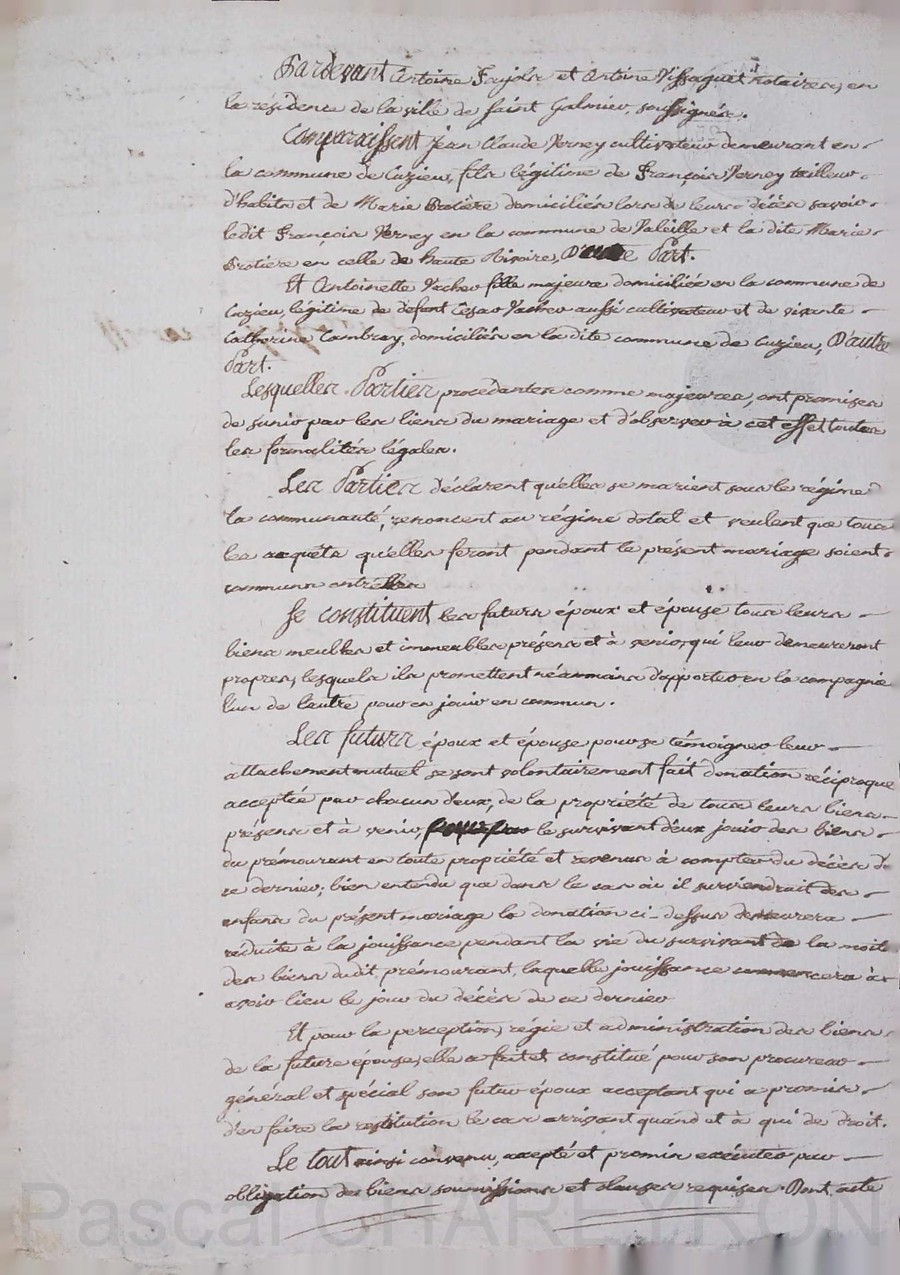 Pardevant Antoine Frujolx et Antoine Vissaguet notaires, en
la résidence de la ville de Saint Galmier, soussignés.
Comparaissent Jean Claude Verney cultivateur demeurant en
la commune de Cuzieu, fils légitime de François Verney tailleur
d'habits et de Marie Brotière domiciliés lors de leurs décès savoir
ledit François Verney en la commune de Valeille et la dite Marie
Brotiere en celle de haute Rivoire, D'une Part.
Et Antoinette Vacher fille majeure domiciliée en la commune de
Cuzieu, légitime de défunt César Vacher aussi cultivateur et de vivante
Catherine Cambray, domiciliés en la dite commune de Cuzieu, D'autre
Part.
Lesquelles Parties procédantes comme majeures, ont promises
de s'unir par les liens du mariage et d'observer à cet effet toutes
les formalités légales.
Les Parties déclarent qu'elles se marient sous le régime
la communauté, renoncent au régime dotal et veulent que tous
les acquêts qu'elles feront pendant le présent mariage soient
communs entr'elles
Se constituent les futurs époux et épouse tous leurs
biens meubles et immeubles présens et à venir, qui leur demeureront
propres, lesquels ils promettent néanmoins d'apporter en la compagnie
l'un de l'autre pour en jouir en commun.
Les futurs époux et épouse pour se témoigner leur
attachement mutuel se sont volontairement fait donation réciproque
acceptée par chacun d'eux, de la propriété de tous leurs biens
présens et à venir, le survivant d'eux jouir des biens
du prémourant en toute propriété et revenus à compter du décès de
ce dernier; bien entendu que dans le cas où il surviendrait des
enfans du présent mariage la donation ci-dessus demeurera
réduite à la jouissance pendant la vie du survivant de la moité
des biens dudit prémourant, laquelle jouissance commencera à
avoir lieu le jour du décès de ce dernier
Et pour la perception, régie et administration des biens
de la future épouse, elle a fait et constitué pour son procureur
général et spécial son futur époux acceptant qui a promis
d'en faire la restitution le cas arrivant quand et à qui de droit.
Le tout ainsi convenu, accepté et promis exécuter par
obligation de biens soumissions et clauses requises. Dont acte
Pascal CHAREYRON